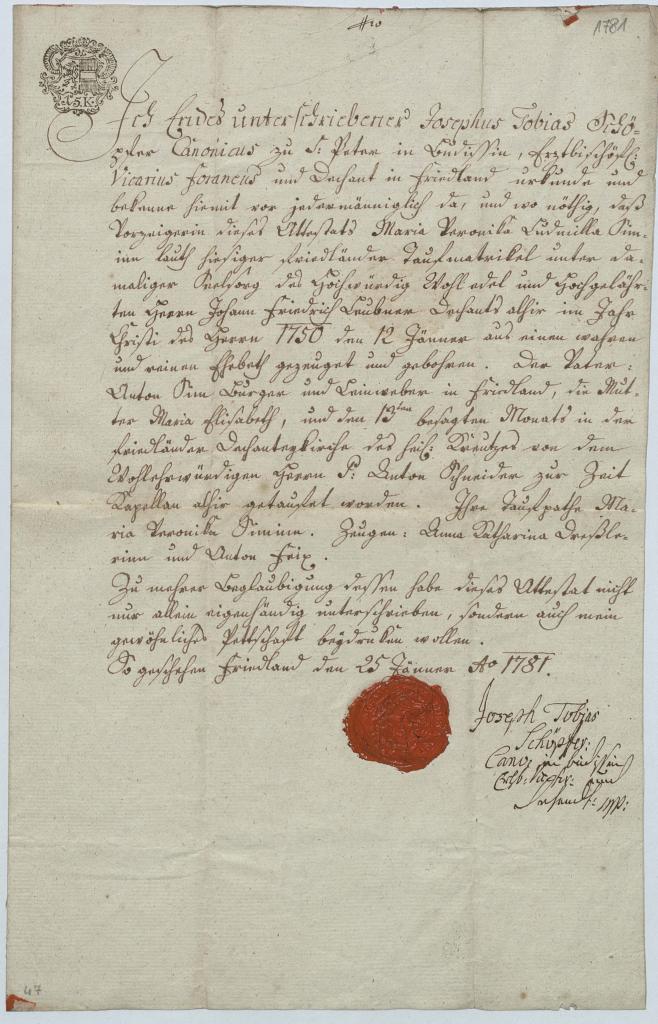 1781
15.K
Ich Endes unterschriebener Josephus Tobias Schö-
pfer Canonicus zu S: Peter in Budissin, Erzbischöfl:
Vicarius foraneus und Dechant in Friedland urkunde und
bekenne hiemit vor jedermänniglich da, und wo nöthig, daß
Vorzeigerin dieses Attestats Maria Veronika Ludmilla Sim-
inn lauth hiesiger friedländer Taufmatrikel unter da-
maliger Seelsorg des Hochwürdig Wohl edel und Hochgelahr-
ten Herrn Johann Friedrich Leubner Dechants alhir im Jahr
Christi des Herrn 1750 den 12 Jänner aus einen wahren
und reinen Ehebeth gezeuget und gebohren. Der Vater:
Anton Sim Burger und Leinweber in Friedland, die Mut-
ter Maria Elisabeth, und den 13ten besagten Monats in der
friedländer Dechanteykirche des heil: Kreutzes von dem
Wohlehrwürdigen Herrn P: Anton Schneider zur Zeit
Kapellan alhir getaufet worden. Ihre Taufpathe Ma-
ria Veronika Siminn. Zeugen: Anna Katharina Dreßle-
rinn und Anton Feix.
Zu mehrer Beglaubigung dessen habe dieses Attestat nicht
nur allein eigenhändig unterschrieben, sondern auch mein
gewöhnliches Pettschaft beydruken wollen.
So geschehen Friedland den 25 Jänner Ao 1781.
Joseph Tobias
Schöpfer:
Cano: in Budissin
Dechant: mp:
47